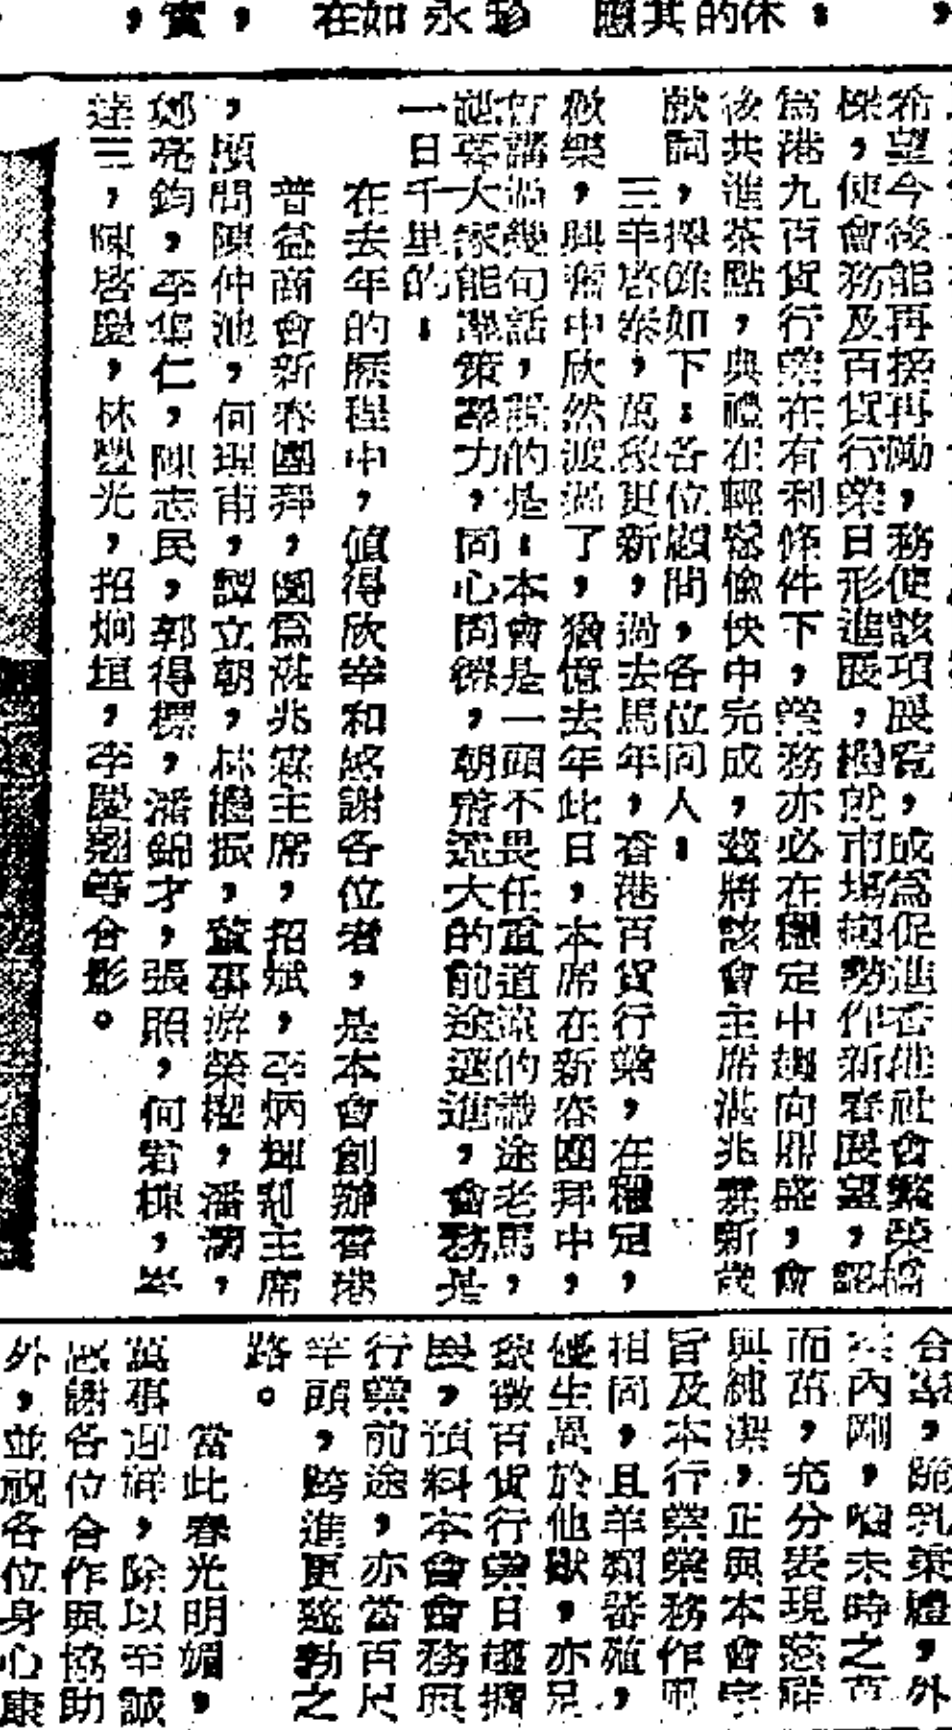 ，實，
在如永珍
應其的休：
希望今後能再接再勵，務使該項展覽，成爲促進香港社會繁榮橋
樑，使會務及百貨行業日形進展，繼就市場趨勢作新春展望，認
爲港九百貨行業在有利條件下，業務亦必在穩定中趨向鼎盛，會
後共進茶點，典禮在輕鬆愉快中完成，茲將該會主席湛兆霖新歲
獻詞，擇錄如下：各位顧問，各位同人：
三羊啓泰，萬象更新，過去馬年，香港百貨行業，在穩定，
歡樂，興奮中欣然渡過了，猶憶去年此日，本席在新春團拜中，
有講過幾句話，說的是：本會是一頭不畏任重道遠的識途老馬，
祗要大家能羣策羣力，同心同德，朝着遠大的前途邁進，會務是
一日千里的：
在去年的歷程中，值得欣幸和感謝各位者，是本會創辦香港
普益商會新春團拜，圖爲湛兆霖主席，招斌，李炳輝副主席
，顧問陳仲池，何理甫，譚立朝，林繼振，董事游榮櫂，潘
鄭亮鈞，李 仁，陳志民，郭得標，潘錦才，張照，何君棟，岑
達三，陳啓慶，林豐光，招炯垣，李慶翹等合影。
合羣，跪乳秉禮，外
內剛，喻未時之
而茁，充分表現慈祥
與純潔，正與本會宗
旨及本行業業務作
相同，且羊類蕃殖，
優生異於他獸，亦足
象徵百貨行業日趨擴
展，預料本會會務與
行業前途，亦當百尺
竿頭，跨進更蓬勃之
路。
當此春光明媚，
萬事迎祥，除以至誠
感謝各位合作與協助
外，並祝各位身心康